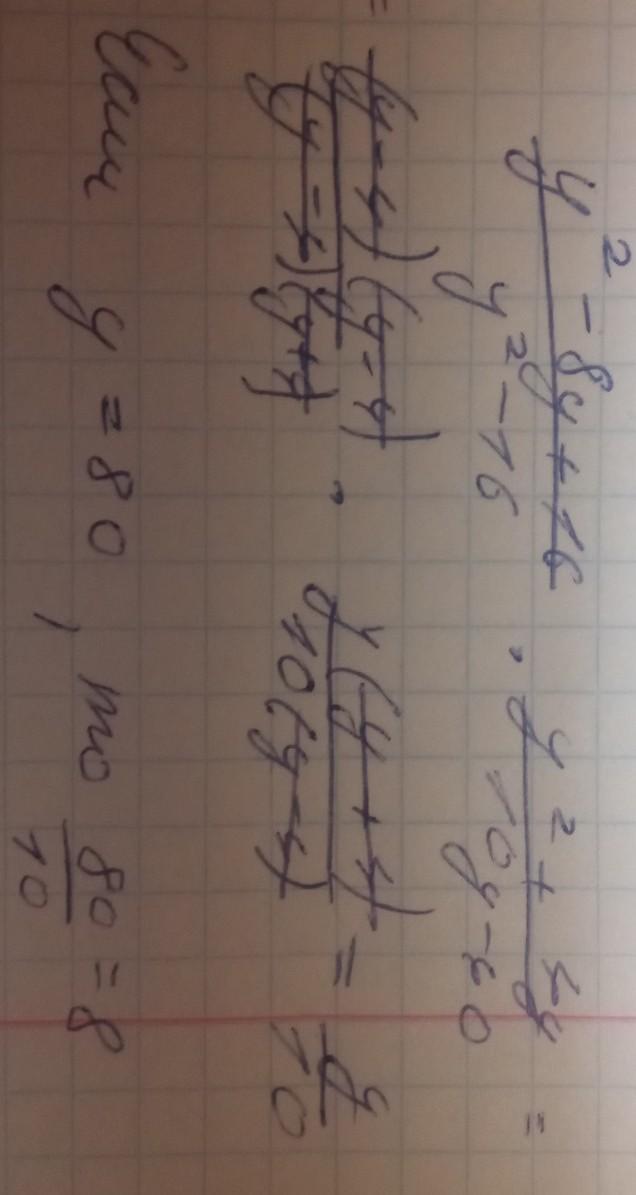 y² - 8y + 16 / y² - 16 · y² + 4y / 10y - 40 =
= (y - 4)(y - 4) / (y - 4)(y + 4) · y(y + 4) / 10(y - 4) = y / 10
Если y = 80, то 80 / 10 = 8